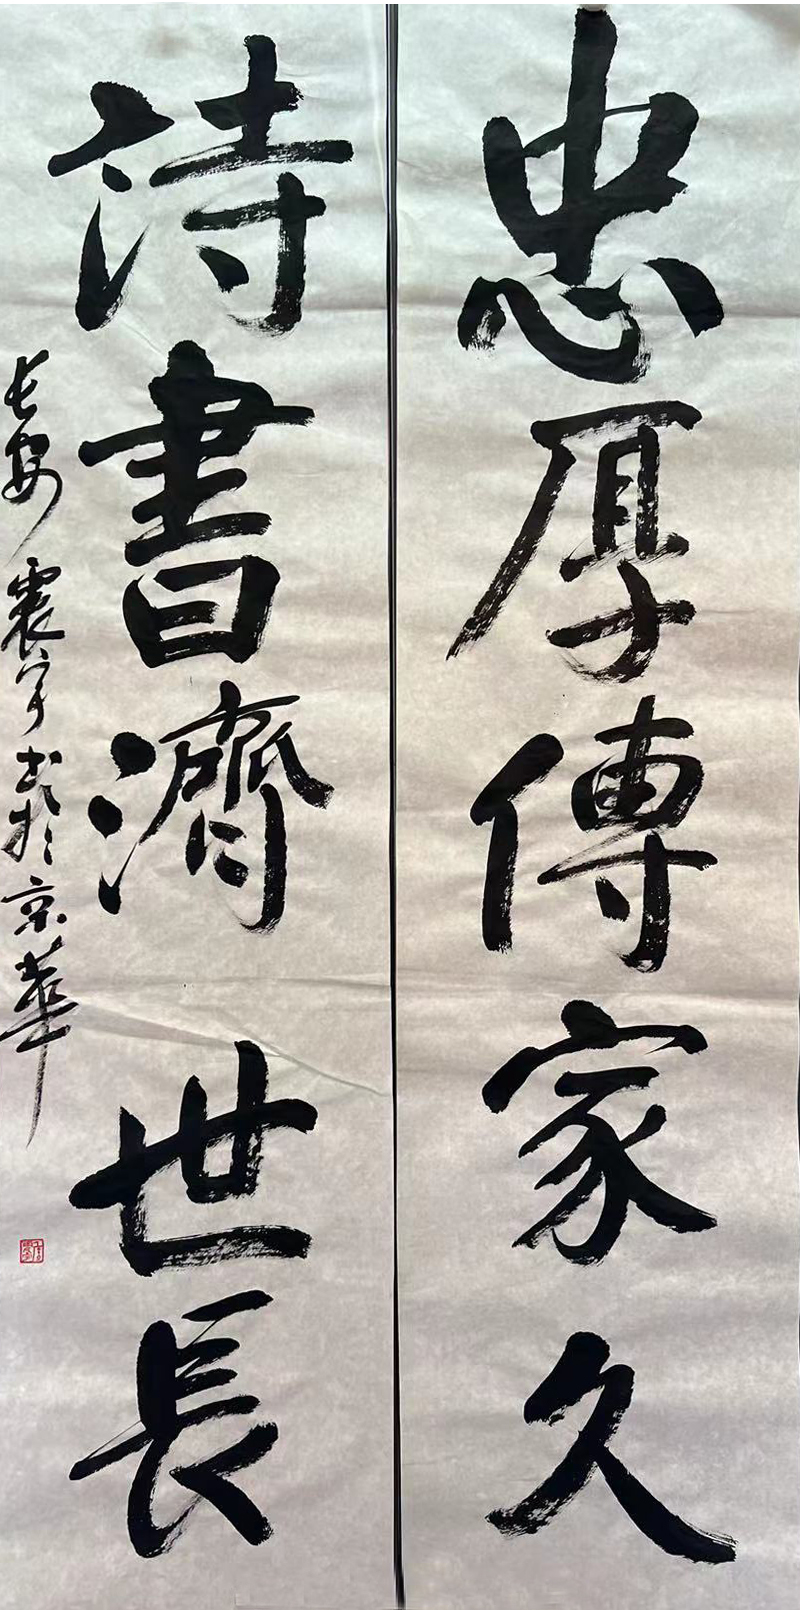 忠厚傳家久
詩書濟世長
長安震宇書於京華